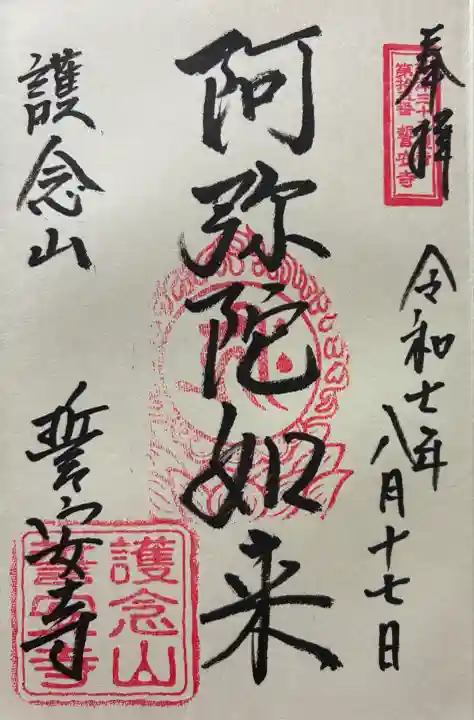 奉拝
令和七年
八月十七日
阿弥陀如来
護念山
誓安寺
護念山
誓安寺
誓安寺